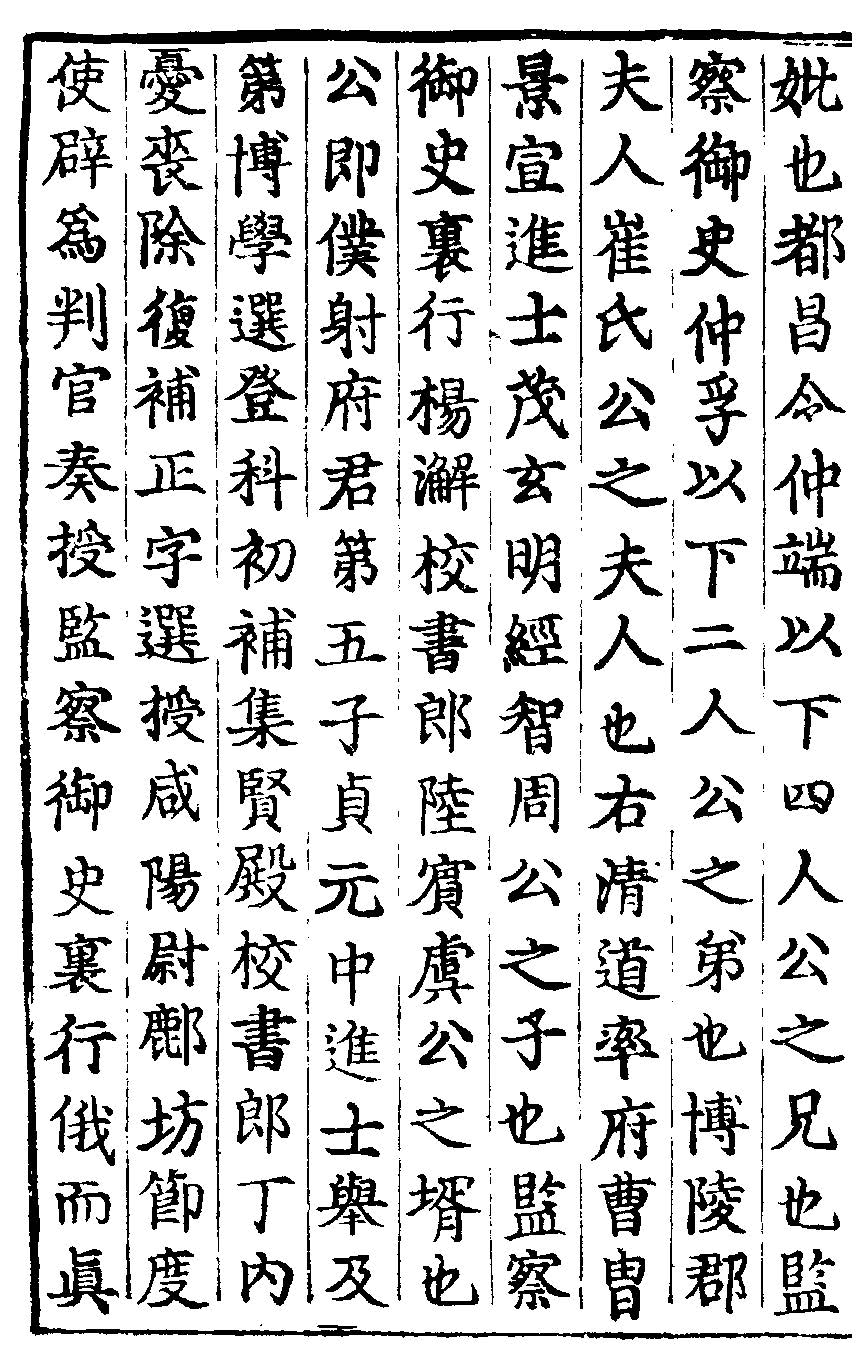 妣也都昌令仲端以下四人公之兄也監
察御史仲孚以下二人公之弟也博陵郡
夫人崔氏公之夫人也右清道率府曹胄
景宣進士茂玄明經智周公之子也監察
御史裏行楊澥校書郎陸賔虞公之壻也
公即僕射府君第五子貞元中進士舉及
第博學選登科初補集賢殿校書郎丁內
憂喪除復補正字選授咸陽尉鄜坊節度
使辟爲判官奏授監察御史裏行俄而眞